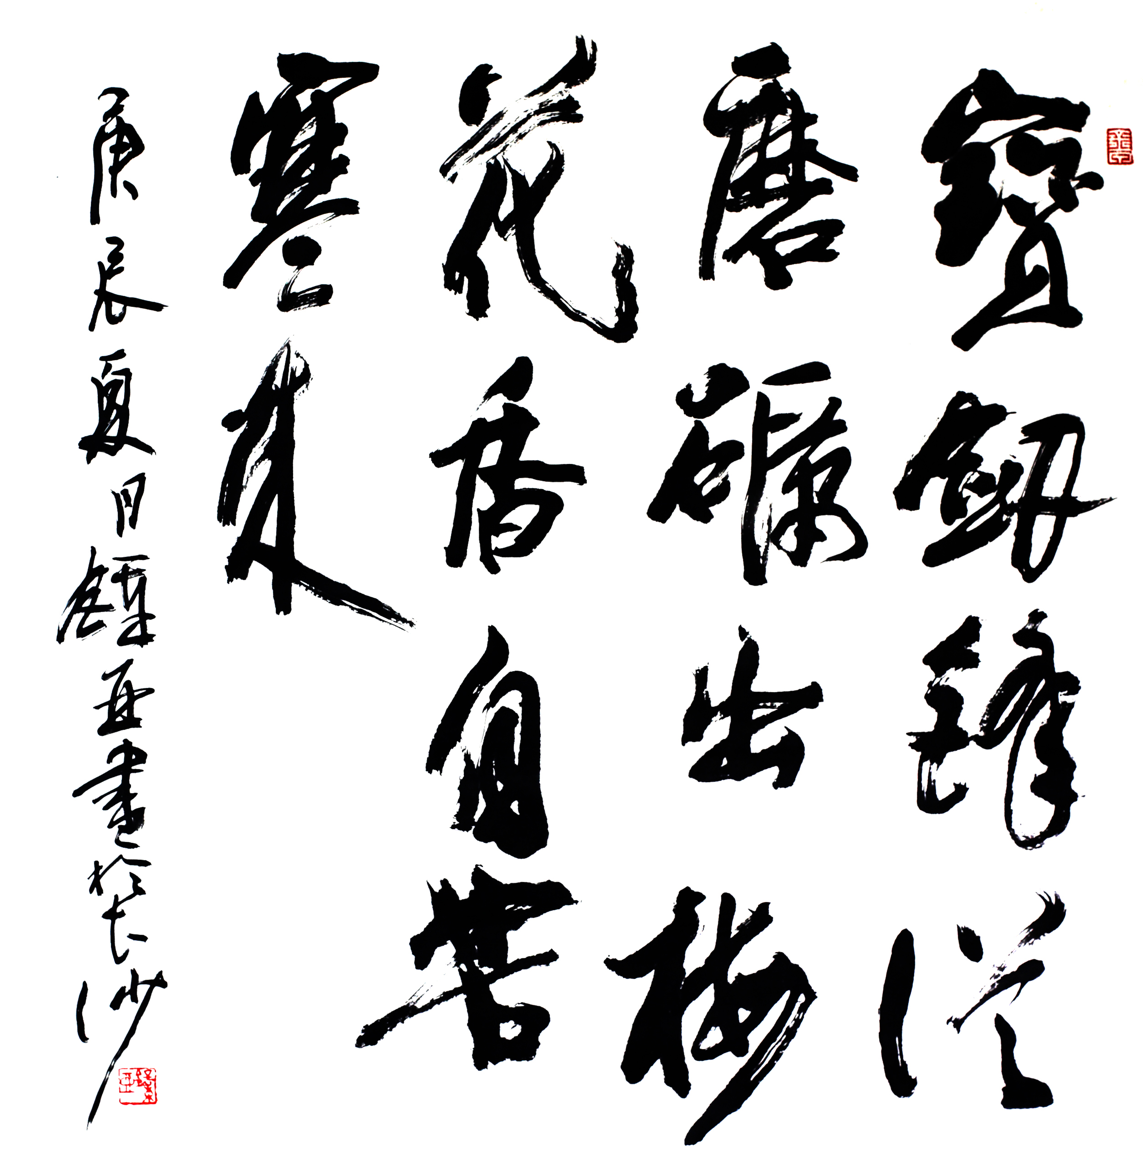 寶劍鋒從
磨礪出梅
花香自苦
寒來
庚辰夏月亞書於长沙